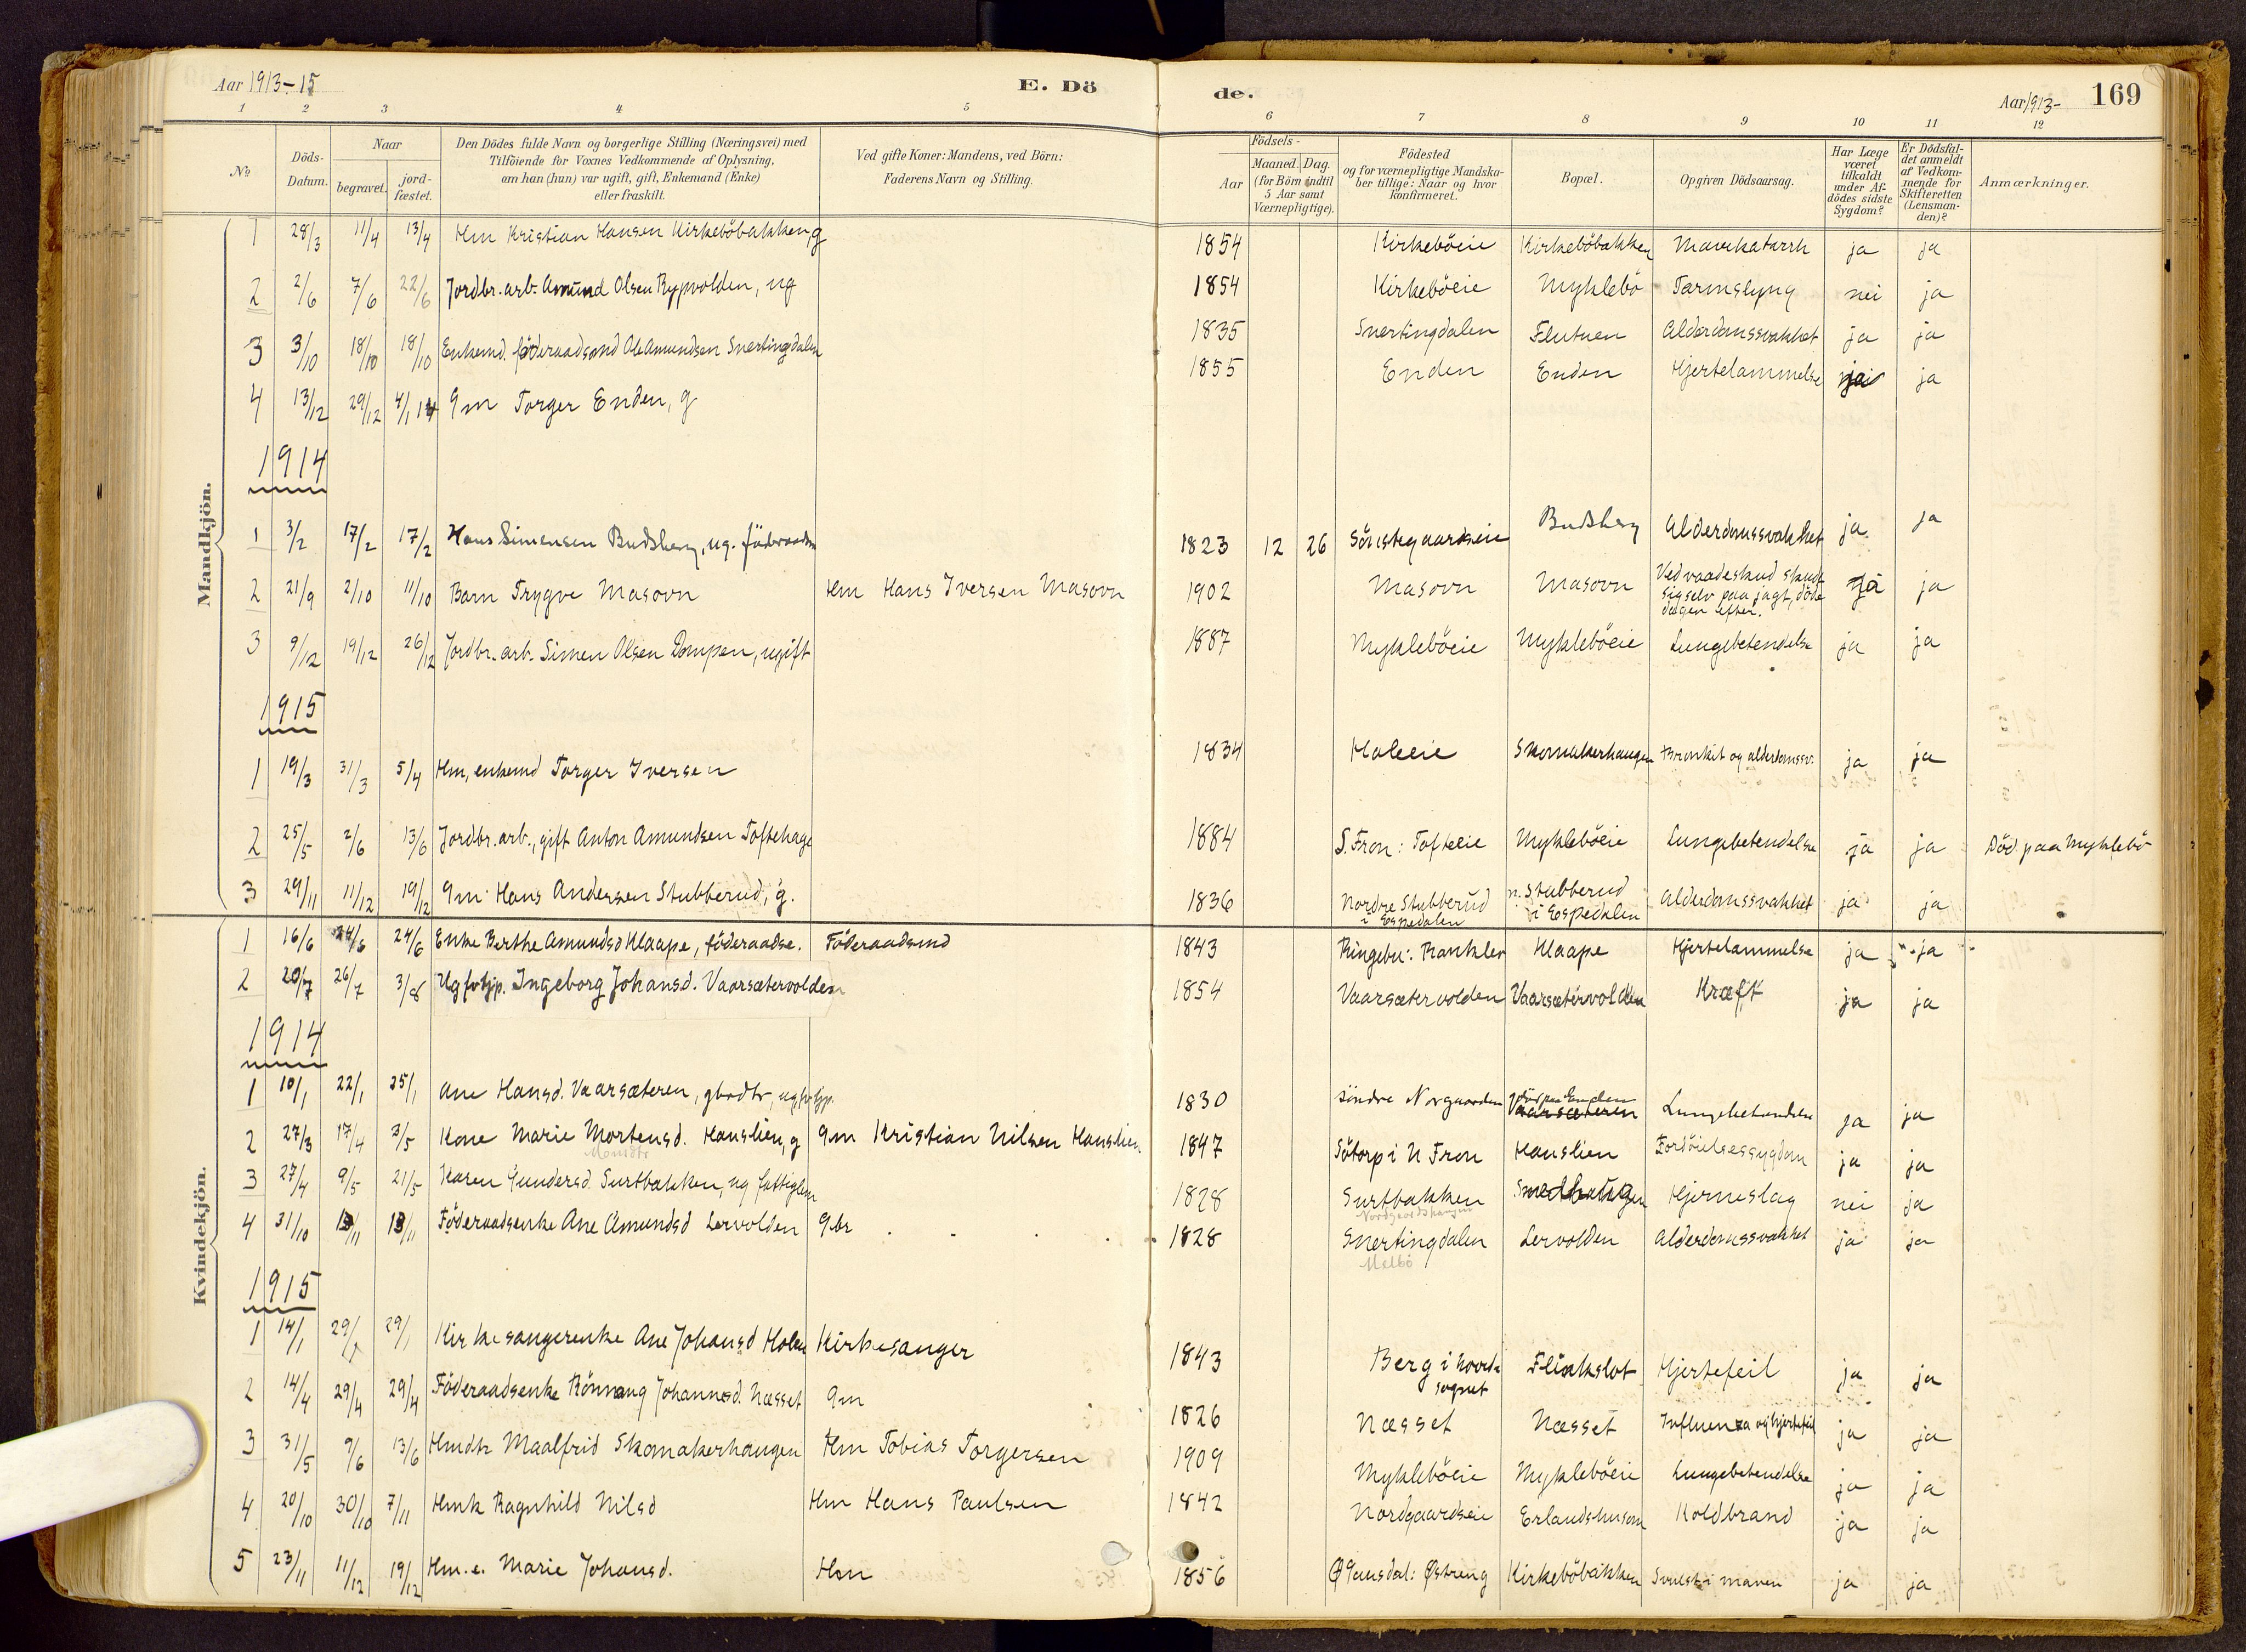 Aar 1913-15
E. Dö
de.
Aar 1913-
169
1 2 3 4 5 6 7 8 9 10 11 12
No
Döds-Datum.
Naar
begravet.
jord-fæstet.
Den Dödes fulde Navn og borgerlige Stilling (Næringsvei) med
Tilföiende for Voxnes Vedkommende af Oplysning,
om han (hun) var ugift, gift, Enkemand (Enke)
eller fraskilt.
Ved gifte Koner: Mandens, ved Börn:
Faderens Navn og Stilling.
Födsels-
Aar
Maaned. Dag.
(for Börn indtil
5 Aar samt
Værnepligtige).
Födested
og for værnepligtige Mandska-
ber tillige: Naar og hvor
konfirmeret.
Bopæl.
Opgiven Dödsaarsag.
Har Læge
været
tilkaldt
under Af-
dödes sidste
Sygdom?
Er Dödsfal-
det anmeldt
af Vedkom-
mende for
Skifteretten
(Lensman-
den)?
Anmærkninger.
Mandkjön.
1 28/3 11/4 13/4 Hm Kristian Hansen Kirkeböbakken, g 1854 Kirkeböeie Kirkeböbakken Mavekatarrh ja ja
2 2/6 7/6 22/6 Jordbr. arb. Amund Olsen Rypvolden, ug 1854 Kirkeböeie Myklebö Tarmslyng nei ja
3 3/10 18/10 18/10 Enkemd. föderaadsmd Ole Amundsen Snertingdalen 1835 Snertingdalen Flutuen Alderdomssvakhet ja ja
4 13/12 29/12 4/1 14 Gm Torger Enden, g 1855 Enden Enden Hjertelammelse ja
1914
1 3/2 17/2 17/2 Hans Simensen Budsberg, ug. föderaadsm 1823 12 26 Budsberg Alderdomssvakhet ja ja
2 21/9 2/10 11/10 Barn Trygve Masovn Hm Hans Iversen Masovn 1902 Masovn Masovn Ved vaadeskud skudt
sig selv paa jagt, döde
dagen efter. ja ja
3 9/12 19/12 26/12 Jordbr. arb. Simen Olsen Dompen, ugift 1887 Mykleböeie Mykleböeie Lungebetendelse ja ja
1915
1 19/3 31/3 5/4 Hm, enkemd Torger Iversen 1834 Holeeie Skomakerhaugen Bronkit og alderdomssv. ja ja
2 25/5 2/6 13/6 Jordbr. arb., gift Anton Amundsen Toftehage 1884 S. Fron: Tofteeie Mykleböeie Lungebetendelse ja ja Död paa Myklebö
3 29/11 11/12 19/12 Gm Hans Andersen Stubberud, g. 1836 Nordre Stubberud
i Espedalen n. Stubberud
i Espedalen Alderdomssvakhet ja ja
Kvindekjön.
1 16/6 24/6 24/6 Enke Berthe Amundsd Klaape, föderaadse. Föderaadsmd 1843 Ringebu: Ranklev Klaape Hjertelammelse ja ja
2 20/7 26/7 3/8 Ug fvtjp. Ingeborg Johansd. Vaarsætervolden 1854 Vaarsætervolden Vaarsætervolden Kræft ja ja
1914
1 10/1 22/1 25/1 Ane Hansd. Vaarsæteren, gbrdtr, 1830 Söndre Norgaarden Vaarsæteren Lungebetendelse ja ja
2 27/3 17/4 3/5 Kone Marie Mortensd. Hanslien, g Gm Kristian Nilsen Hanslien 1847 Sötorp i N Fron Hanslien Fordöielsessygdom ja ja
3 27/4 9/5 21/5 Karen Gundersd. Surtbakken, ug fattiglem 1828 Surtbakken Smedhaugen Hjerneslag nei ja
4 31/10 13/11 13/11 Föderaadsenke Ane Amundsd Lervolden Gbr 1828 Snertingdalen
Melbö Lervolden Alderdomssvakhet ja ja
1915
1 14/1 29/1 29/1 Kirkesangerenke Ane Johansd Holen Kirkesanger 1843 Berg i hoved-
sognet Flaakslot Hjertefeil ja ja
2 14/4 29/4 29/4 Föderaadsenke Rönnaug Johannesd. Næsset Gm 1826 Næsset Næsset Influenza og hjertefeil ja ja
3 31/5 9/6 13/6 Hmdtr Maalfrid Skomakerhaugen Hm Tobias Torgersen 1909 Mykleböeie Mykleböeie Lungebetendelse ja ja
4 20/10 30/10 7/11 Hmk Ragnhild Nilsd Hm Hans Paulsen 1842 Nordgaardseie Erlandshusom Koldbrand ja ja
5 23/11 11/12 19/12 Hm. e. Marie Johansd. Hm 1856 Ø Gausdal: Østreng Kirkeböbakken Svulst i maven ja ja